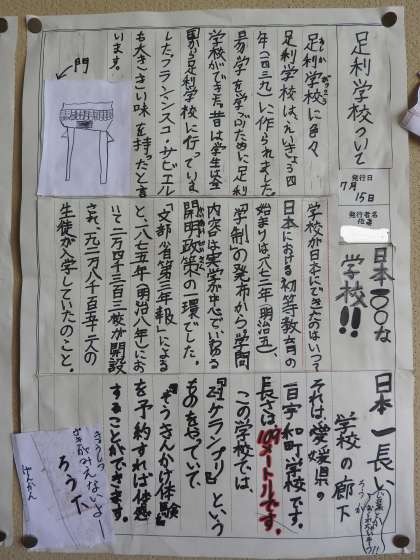 足利学校ついて
発行日
7月
15日
発行者名
足利学校に色々
足利学校は、えいきょう四
年(一四三九)に作られました。
易学を学ぶために足利
学校ができた。昔は学生は全
国から足利学校に行っていま
したフランシスコ・サビエル
も大きさい味を持ったと言
います。
門
日本一〇〇な
学校!!
学校が日本にできたのはいつ?
日本における初等教育の
始まりは一八七三年(明治五)、
「学制」の発布から。学問
内容は実学が中心でいわゆる
開明政策の一環でした。
「文部省第三年報」による
と、一八七五年(明治八年)にお
いて二万四千三百三校が開設
され、一九二万八千百五十二人の
生徒が入学していたのこと。
日本一長い
学校の廊下
ろうか
それは、愛媛県の
宇和町学校です。
長さは109メートルです。
この学校では、
『Z-1グランプリ』という
ものをやっていて、
『ぞうきんがけ体験』
を予約すれば体感
することができます。
きょうしつ
がみえないよー
ろう下
げんかん